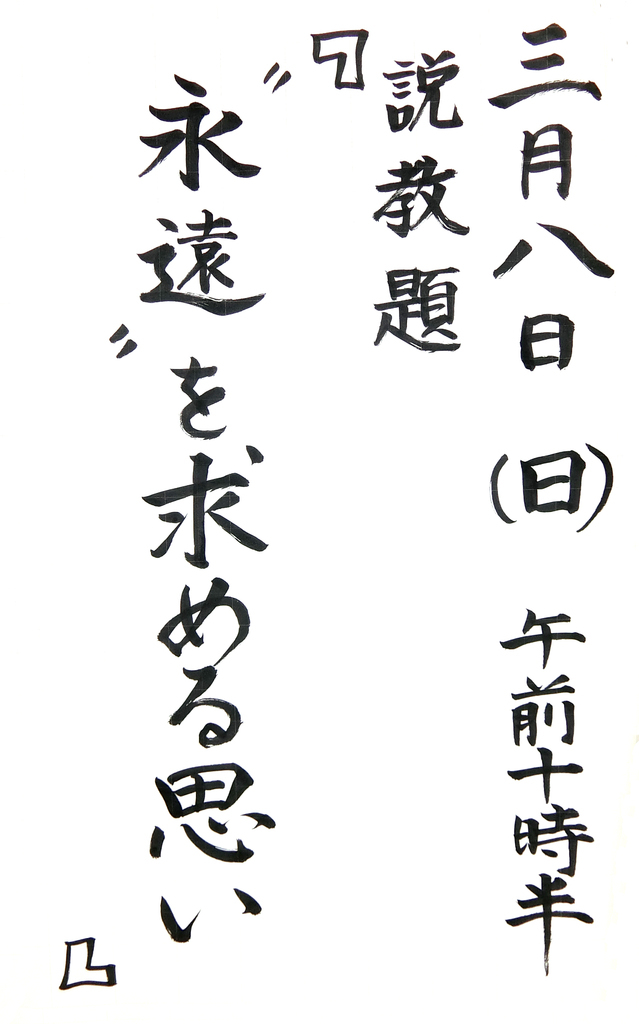 三月八日（日）　午前十時半
説教題
『〝永遠〟を求める思い』